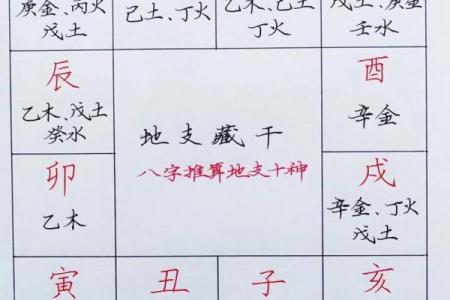 庚金、丙火
戊土
己土、丁火
乙木、己土
丁火
戊土、庚金
壬水
辰
乙木、戊土
癸水
酉
辛金
地支藏干
八字推算地支十神
卯
乙木
戌
辛金、丁火
戊土
寅
丑
子
亥